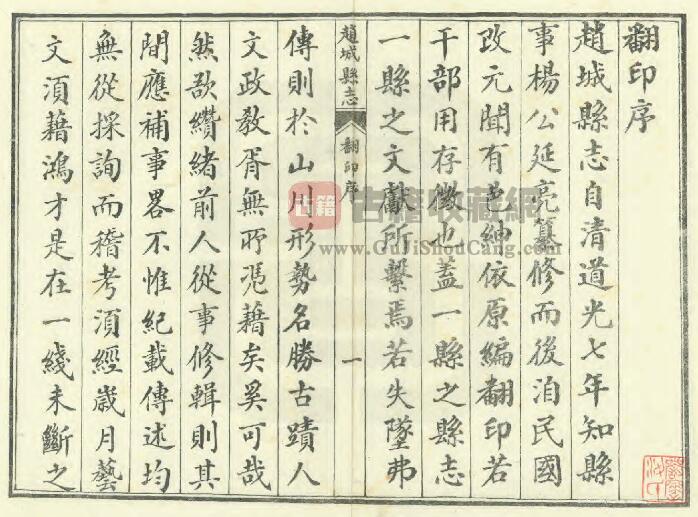 翻印序
趙城縣志自清道光七年知縣
事楊公延亮纂修而後洎民國
改元聞有邑紳依原編翻印若
干部用存徵也蓋一縣之縣志
一縣之文獻所繫焉若失墜弗
趙城縣志
翻印序
一
傳則於山川形勢名勝古蹟人
文政教胥無所憑藉矣奚可哉
然欲纘緒前人從事修輯則其
間應補事畧不惟紀載傳述均
無從採詢而稽考須經歲月藝
文須藉鴻才是在一綫未斷之
古籍
古籍收藏網
www.GuJiShouCang.com